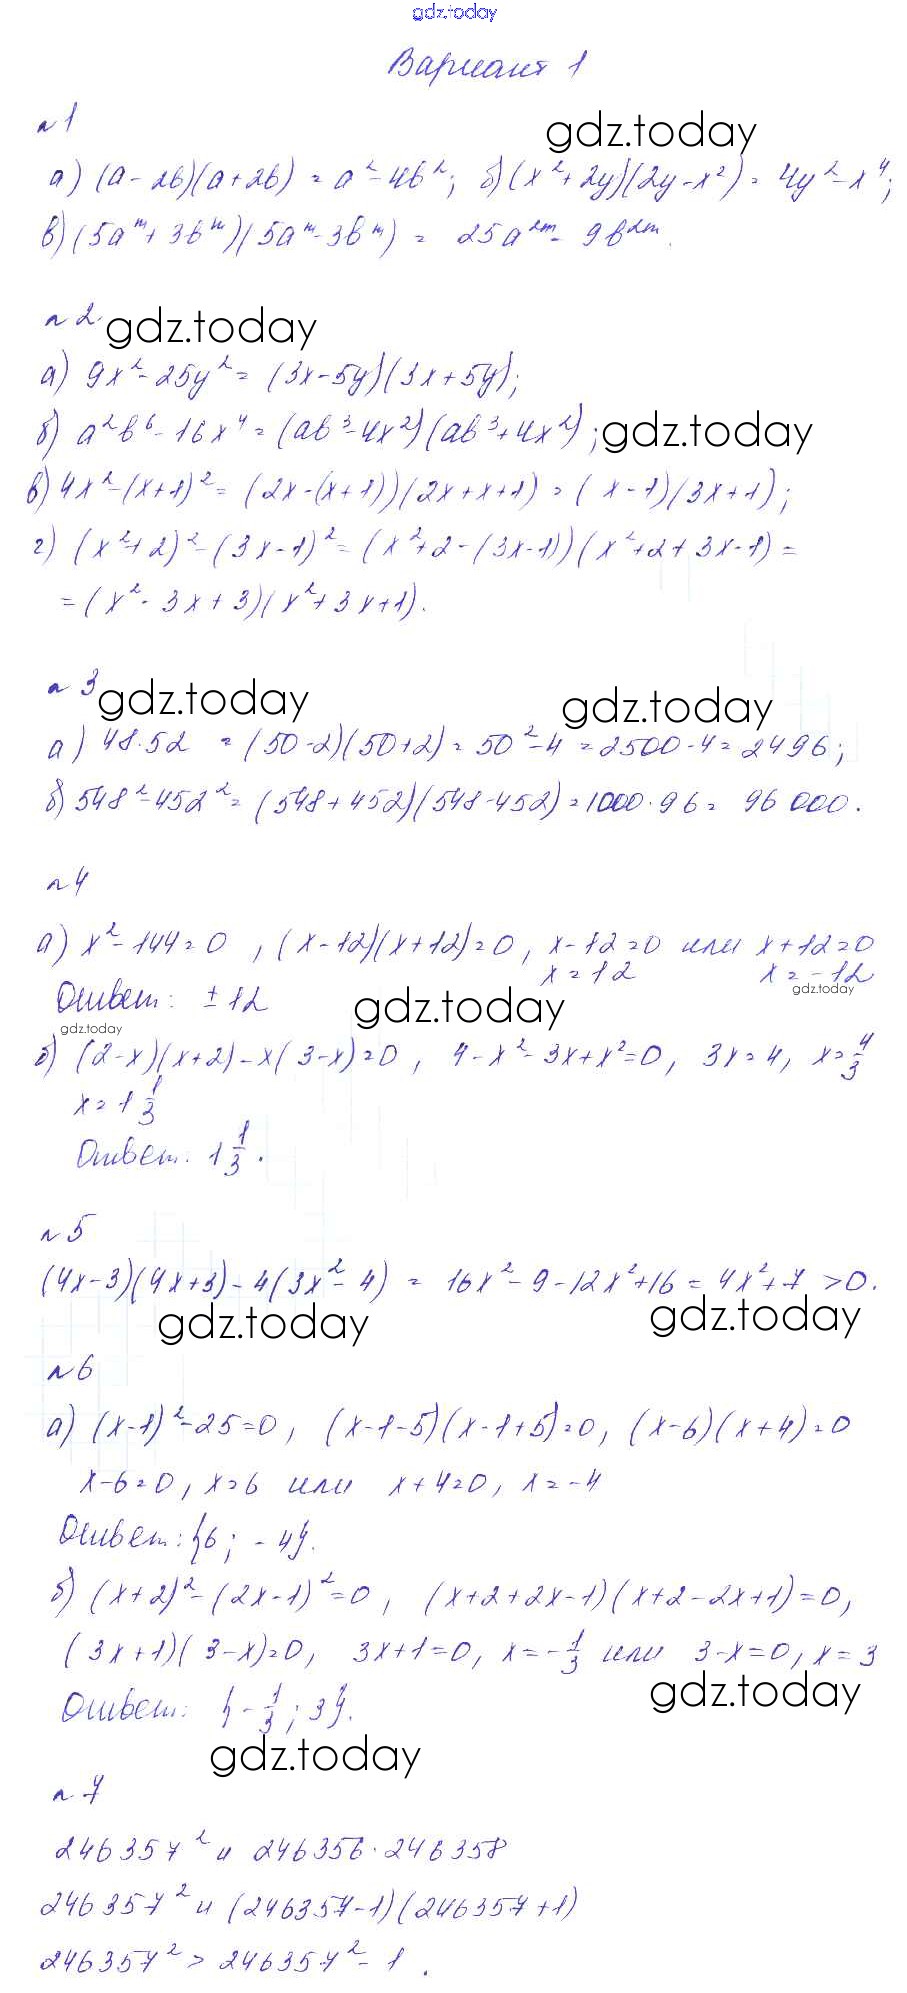 gdz.today
Вариант 1
№1
gdz.today
а) (a - 2b)(a + 2b) = a² - 4b²; б) (x² + 2y)(2y - x²) = 4y² - x⁴;
в) (5aᵐ + 3bᵐ)(5aᵐ - 3bᵐ) = 25a²ᵐ - 9b²ᵐ.
№2
gdz.today
а) 9x² - 25y² = (3x - 5y)(3x + 5y);
б) a²b⁶ - 16x⁴ = (ab³ - 4x²)(ab³ + 4x²); gdz.today
в) 4x² - (x+1)² = (2x - (x+1))(2x + x + 1) = (x - 1)(3x + 1);
г) (x² + 2)² - (3x - 1)² = (x² + 2 - (3x - 1))(x² + 2 + 3x - 1) =
= (x² - 3x + 3)(x² + 3x + 1).
№3
gdz.today gdz.today
а) 48·52 = (50 - 2)(50 + 2) = 50² - 4 = 2500 - 4 = 2496;
б) 548² - 452² = (548 + 452)(548 - 452) = 1000·96 = 96 000.
№4
а) x² - 144 = 0, (x - 12)(x + 12) = 0, x - 12 = 0 или x + 12 = 0
x = 12 x = -12
gdz.today
Ответ: ±12 gdz.today
gdz.today
б) (2 - x)(x + 2) - x(3 - x) = 0, 4 - x² - 3x + x² = 0, 3x = 4, x = 4/3
x = 1 1/3
Ответ. 1 1/3.
№5
(4x - 3)(4x + 3) - 4(3x² - 4) = 16x² - 9 - 12x² + 16 = 4x² + 7 > 0.
gdz.today gdz.today
№6
а) (x - 1)² - 25 = 0, (x - 1 - 5)(x - 1 + 5) = 0, (x - 6)(x + 4) = 0
x - 6 = 0, x = 6 или x + 4 = 0, x = -4
Ответ: {6; -4}.
б) (x + 2)² - (2x - 1)² = 0, (x + 2 + 2x - 1)(x + 2 - 2x + 1) = 0,
(3x + 1)(3 - x) = 0, 3x + 1 = 0, x = -1/3 или 3 - x = 0, x = 3
gdz.today
Ответ: {-1/3; 3}.
gdz.today
№7
246357² и 246356·246358
246357² и (246357 - 1)(246357 + 1)
246357² > 246357² - 1.